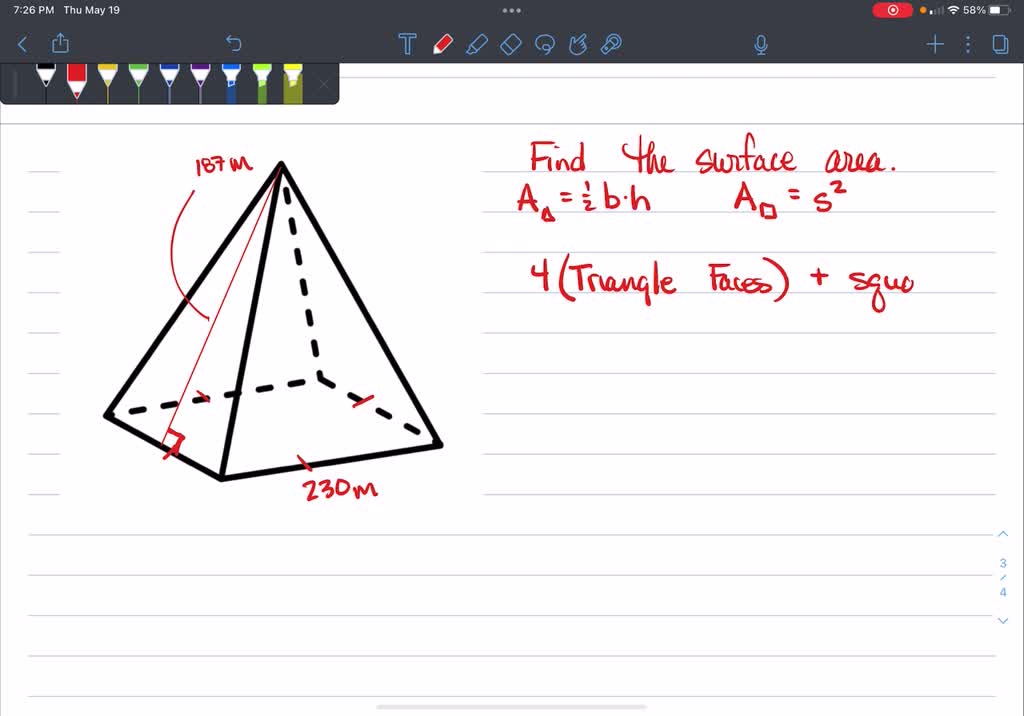 7:26 PM Thu May 19
58%
T
187m
Find the surface area.
A△ = ½ b·h A□ = s²
4(Triangle Faces) + squa
230m
3
4